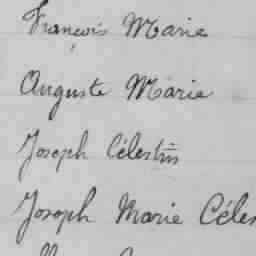 François Marie
Auguste Marie
Joseph Célestin
Joseph Marie Céles